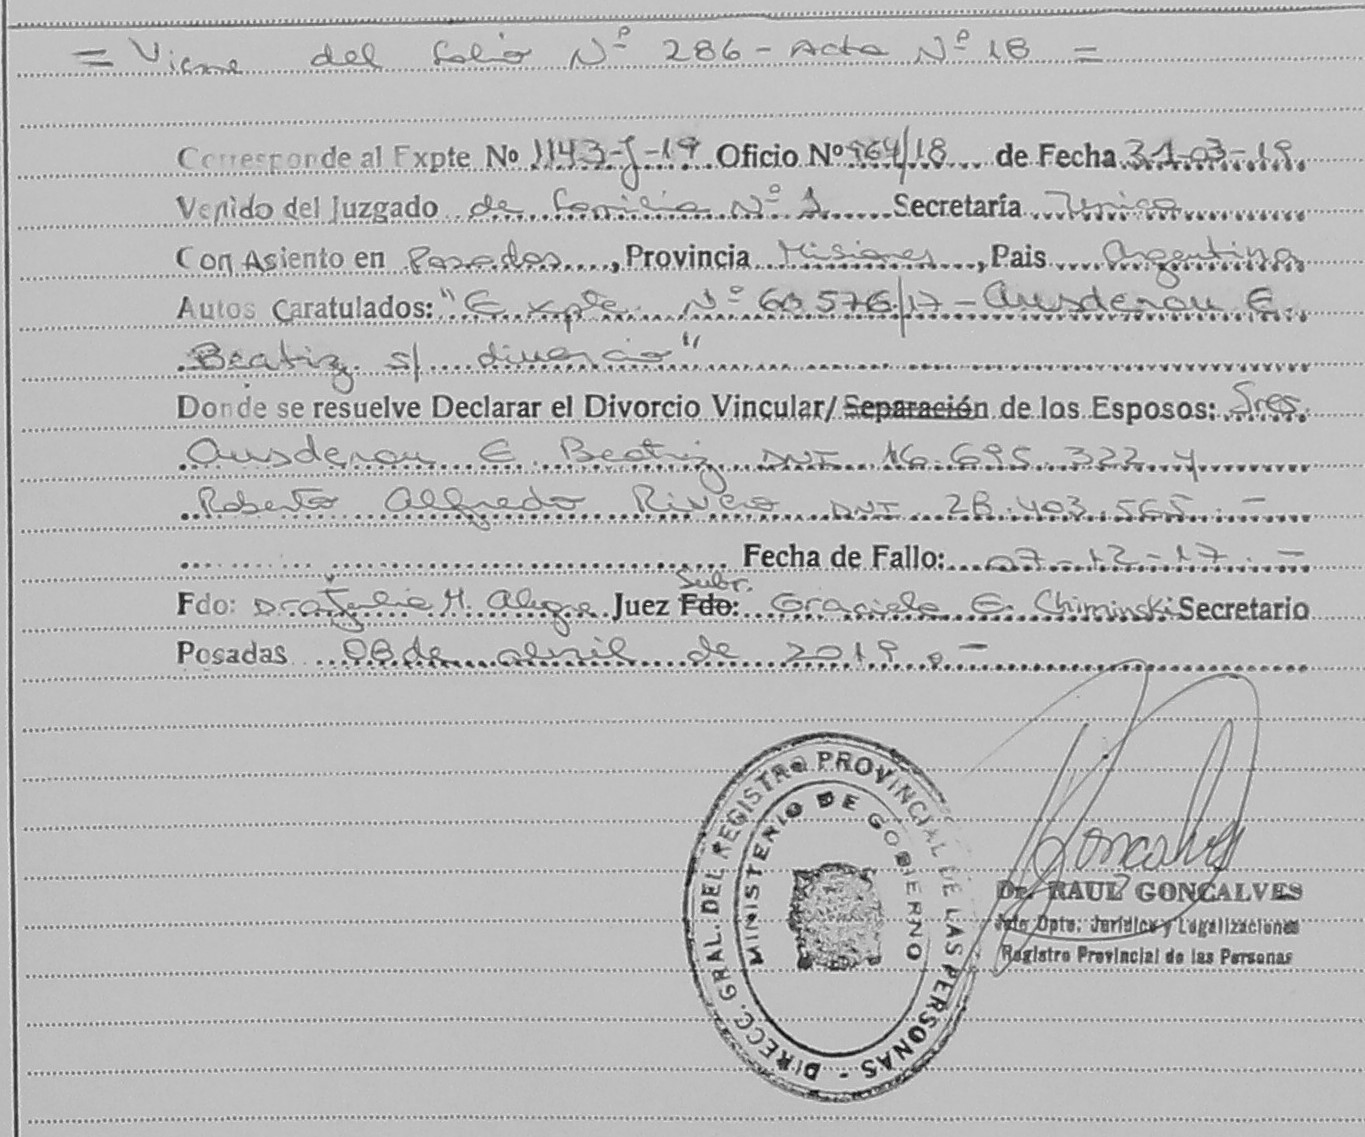 = Viene del folio Nº 286 - Acta Nº 18 =
Corresponde al Expte Nº 1143-J-19 Oficio Nº 964/18 de Fecha 21-03-19
Venido del Juzgado de Familia Nº 1 Secretaría Unica
Con Asiento en Posadas, Provincia Misiones, Pais Argentina
Autos Caratulados: "Expte Nº 60576/17 - Ausderau E.
Beatiz s/ divorcio"
Donde se resuelve Declarar el Divorcio Vincular/ Separación de los Esposos: Sres.
Ausderau E. Beatriz DNI 16.695.322 y
Roberto Alfredo Rivero DNI 28.403.565. -
Fecha de Fallo: 07-12-17. -
Subr.
Fdo: Dra Julia M. Alegre Juez Fdo: Graciela E. Chiminski Secretario
Posadas 08 de abril de 2019. -
DIRECC. GRAL. DEL REGISTRO PROVINCIAL DE LAS PERSONAS -
MINISTERIO DE GOBIERNO
Goncalves
Dr. RAUL GONCALVES
Jefe Dpto. Jurídico y Legalizaciones
Registro Provincial de las Personas